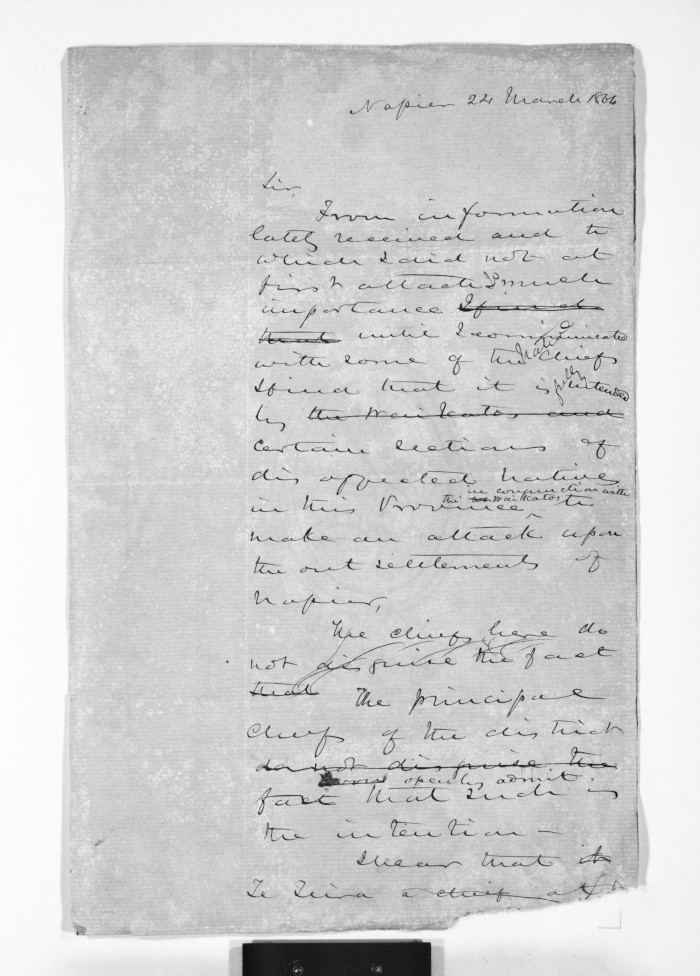 Napier 24 March 1864
Sir,
From information
lately received and to
which I did not at
first attach much
importance I find
that until I communicated
with some of the Native Chiefs
I find that it is fully intended
by the Waikatos and
certain sections of
disaffected Natives
in conjunction with
in this Province the Waikatos to
make an attack upon
the out settlements of
Napier,
The chiefs here do
not disguise the fact
that The principal
Chiefs of the district
do not disguise the
openly admit
fact that such is
the intention —
I hear that it
Te Teira a chief at